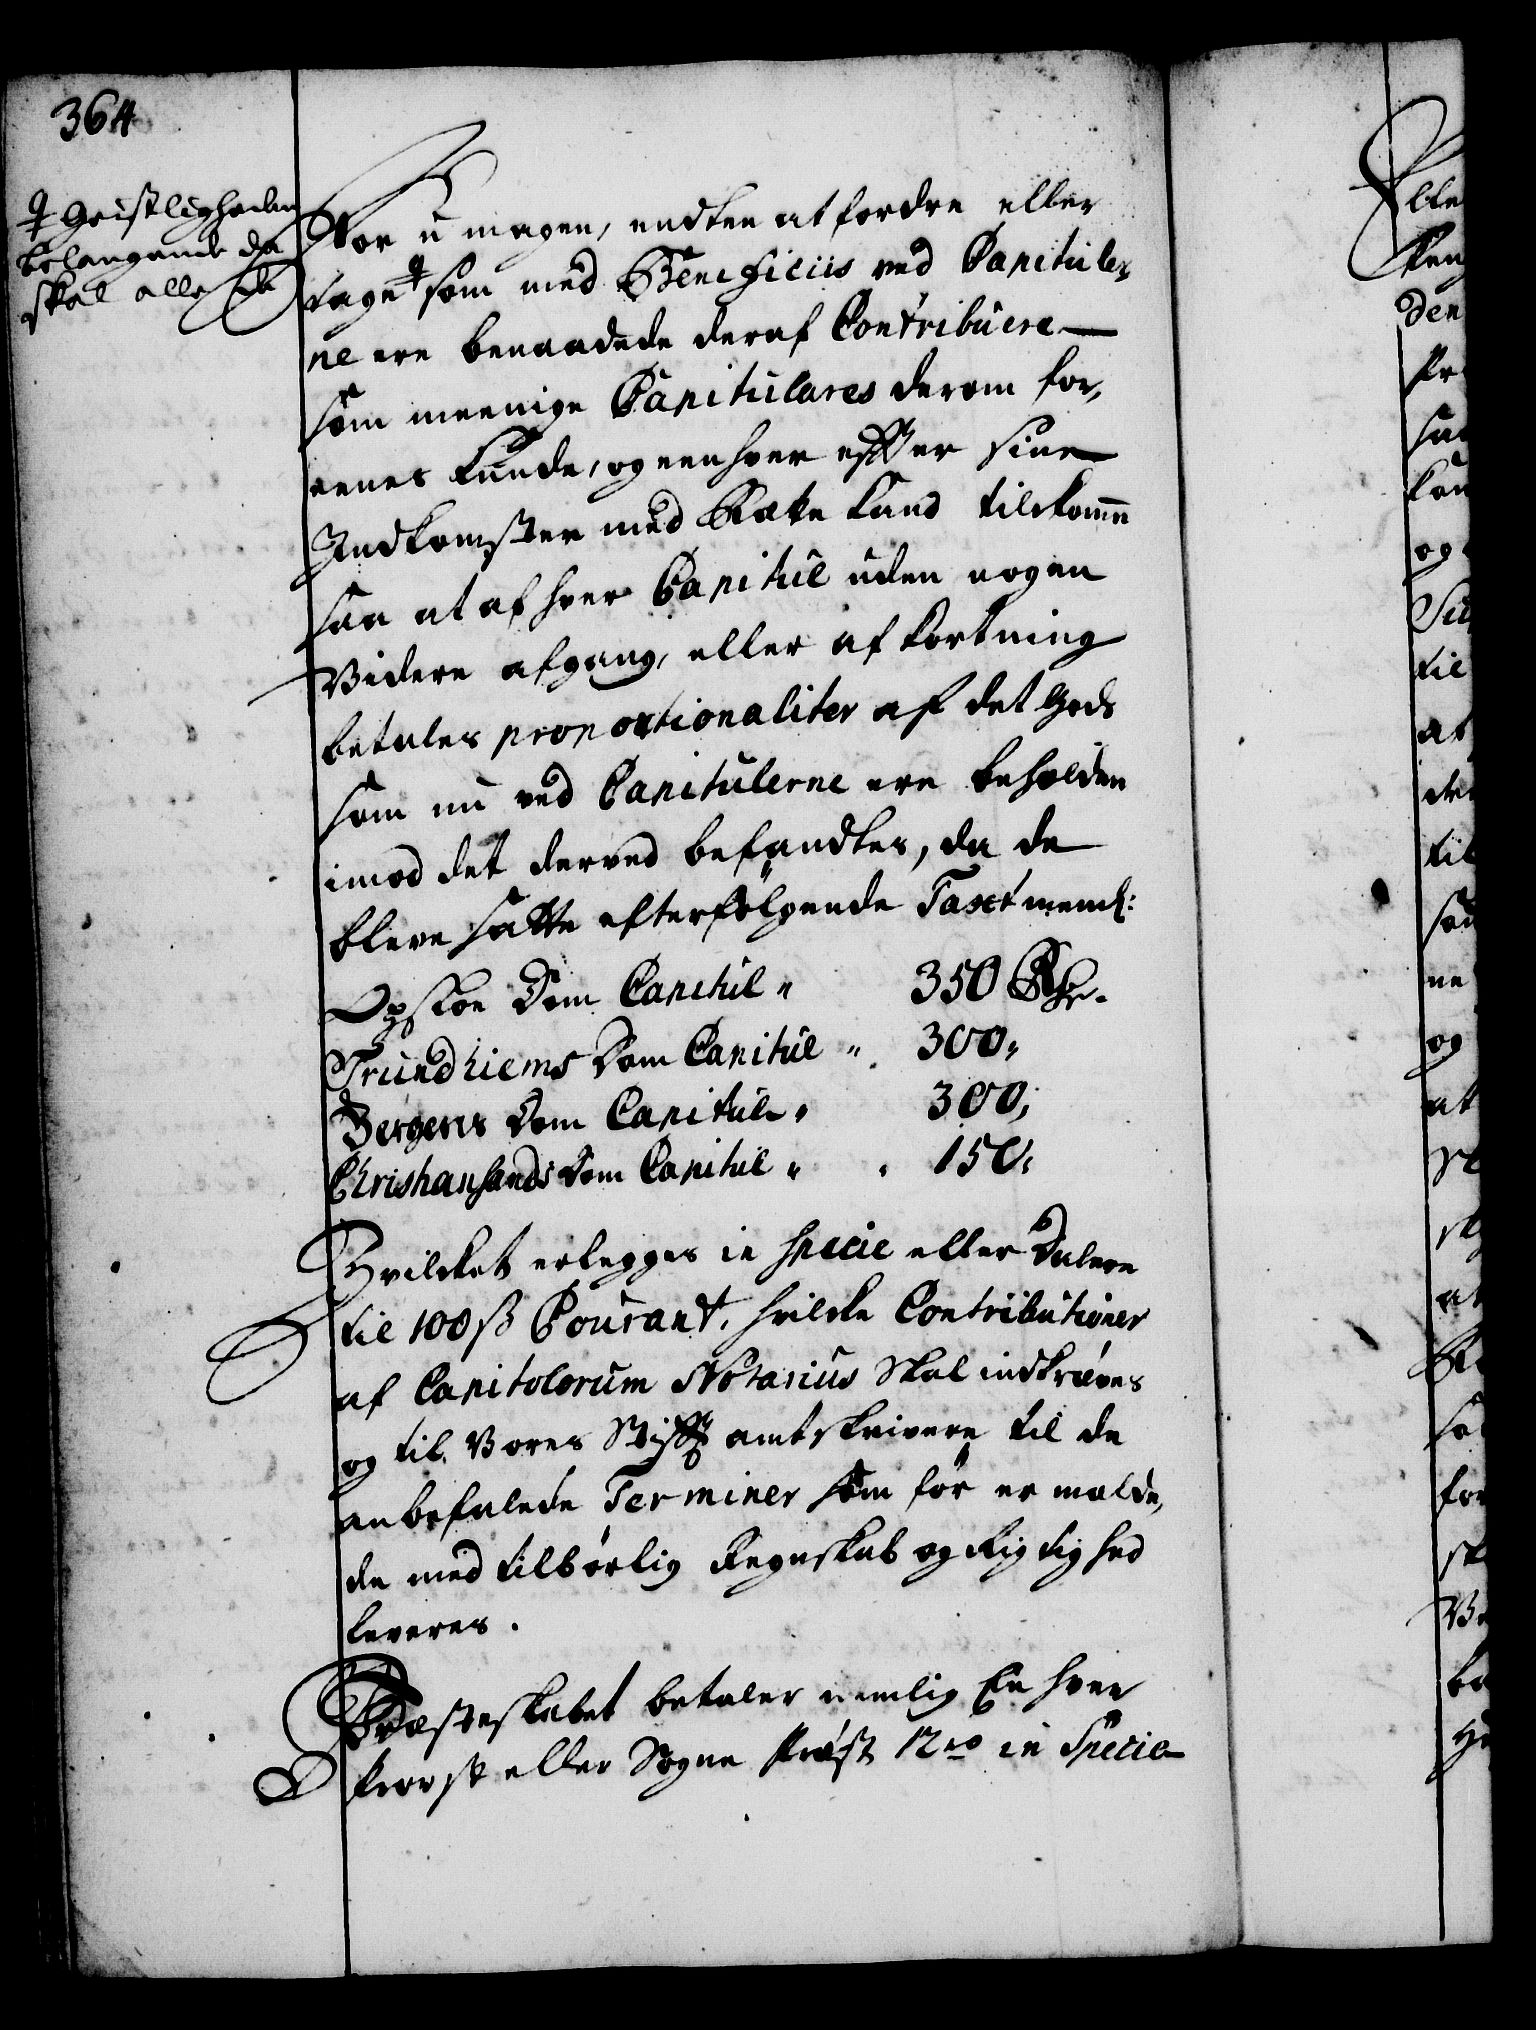 364
☿ Geistligheden
belangende da
skal alle de
Vor umagen, endten at fordre eller
tage ☿ som med Beneficiis ved Capituler,
ne ere benaadede deraf Contribuere
som meenige Capitulares derom for,
eenes kunde, og een hver effter sine
Indkomster med Rætte kand tilkomme
saa at af hver Capitul uden nogen
Videre afgang, eller afkortning
betales proportionaliter af det Gods
som nu ved Capitulerne ere beholden
imod det derved befandtes, da de
bleve satte efterfølgende Taxt neml:
Opsloe Dom Capitul " 350 Rdr.
Trundhiems Dom Capitul " 300,
Bergens Dom Capitul " 300,
Christiansands Dom Capitul " 150,
Hvilcket erlegges in specie eller Dalere
til 100 ß Courant, hvilcke Contributioner
af Capitolorum Notarius skal indkræves
og til Vores Stifft amtskrivere til de
anbefalede Terminer som før er melde,
de med tilbørlig Regnskab og Rigtighed
leveres.
Præsteskabet betaler nemlig En hver
Provst eller Sogne Præst 12 rd in Specie